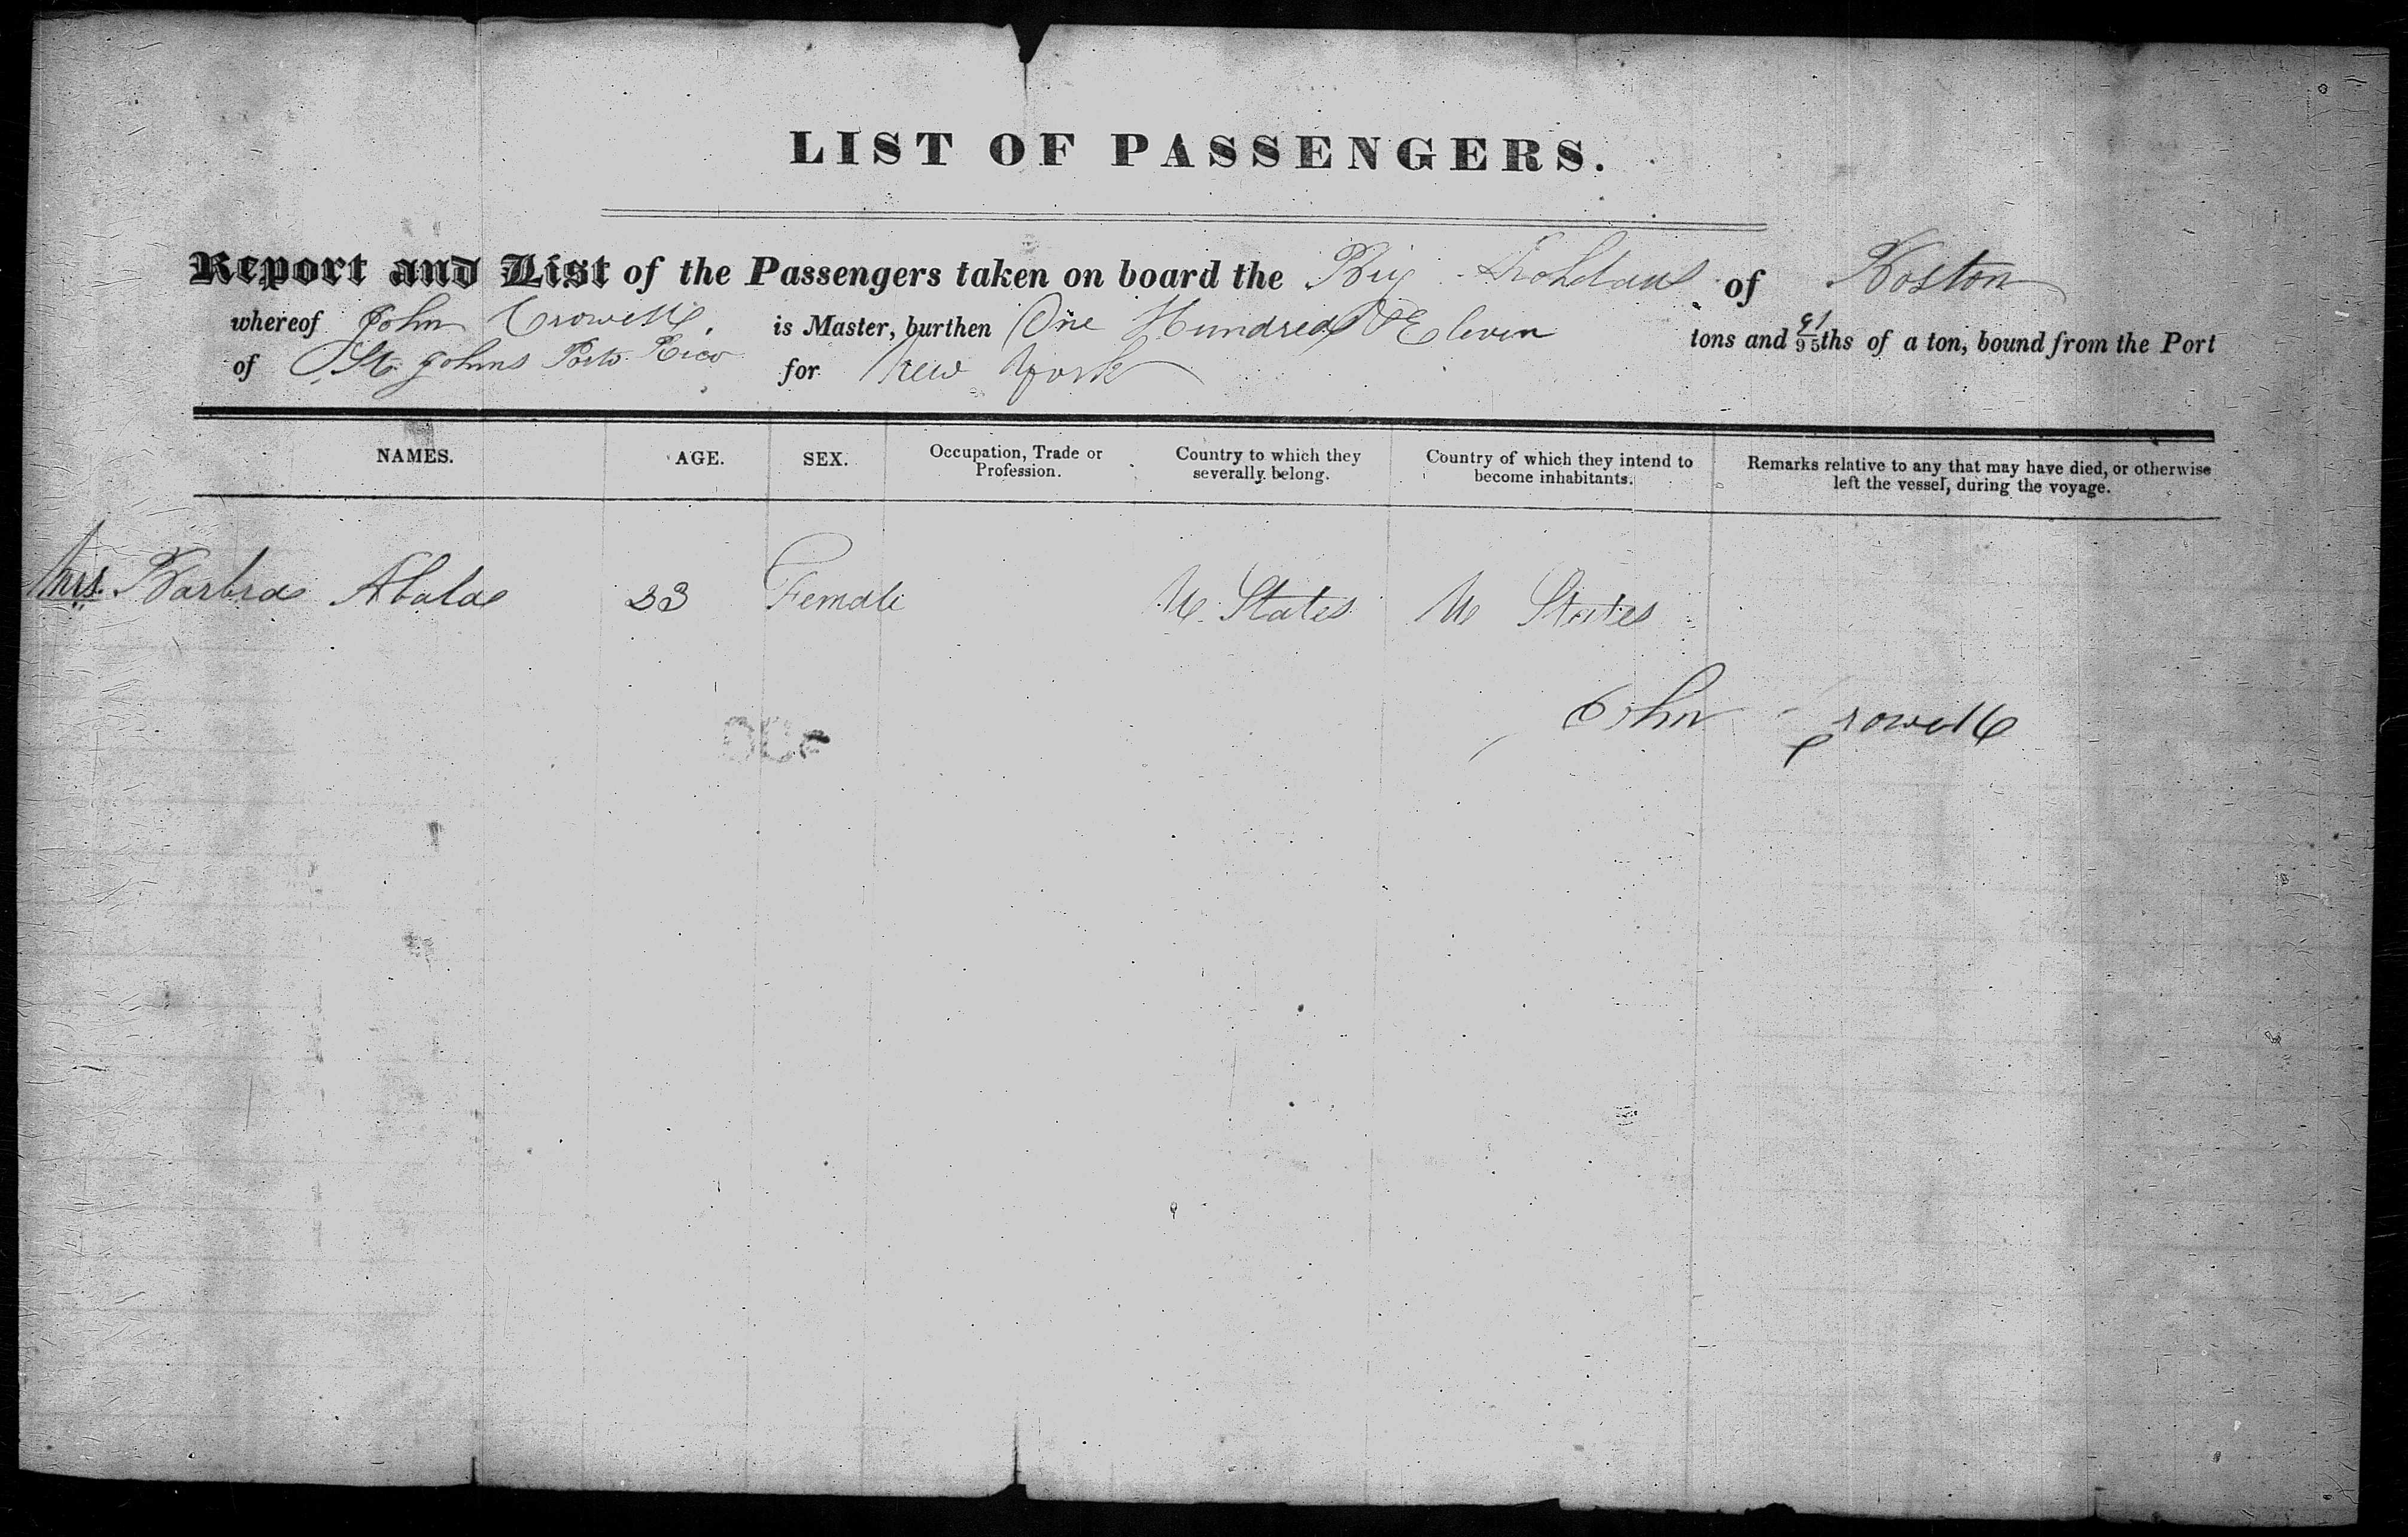 LIST OF PASSENGERS.
Report and List of the Passengers taken on board the Brig of Boston
whereof John Crowell, is Master, burthen One Hundred & Eleven tons and 91/95ths of a ton, bound from the Port
of St. Johns Porto Rico for New York
NAMES. AGE. SEX. Occupation, Trade or Profession. Country to which they severally belong. Country of which they intend to become inhabitants. Remarks relative to any that may have died, or otherwise left the vessel, during the voyage.
Mrs. Barbra Abala 33 Female U. States U States
John Crowell